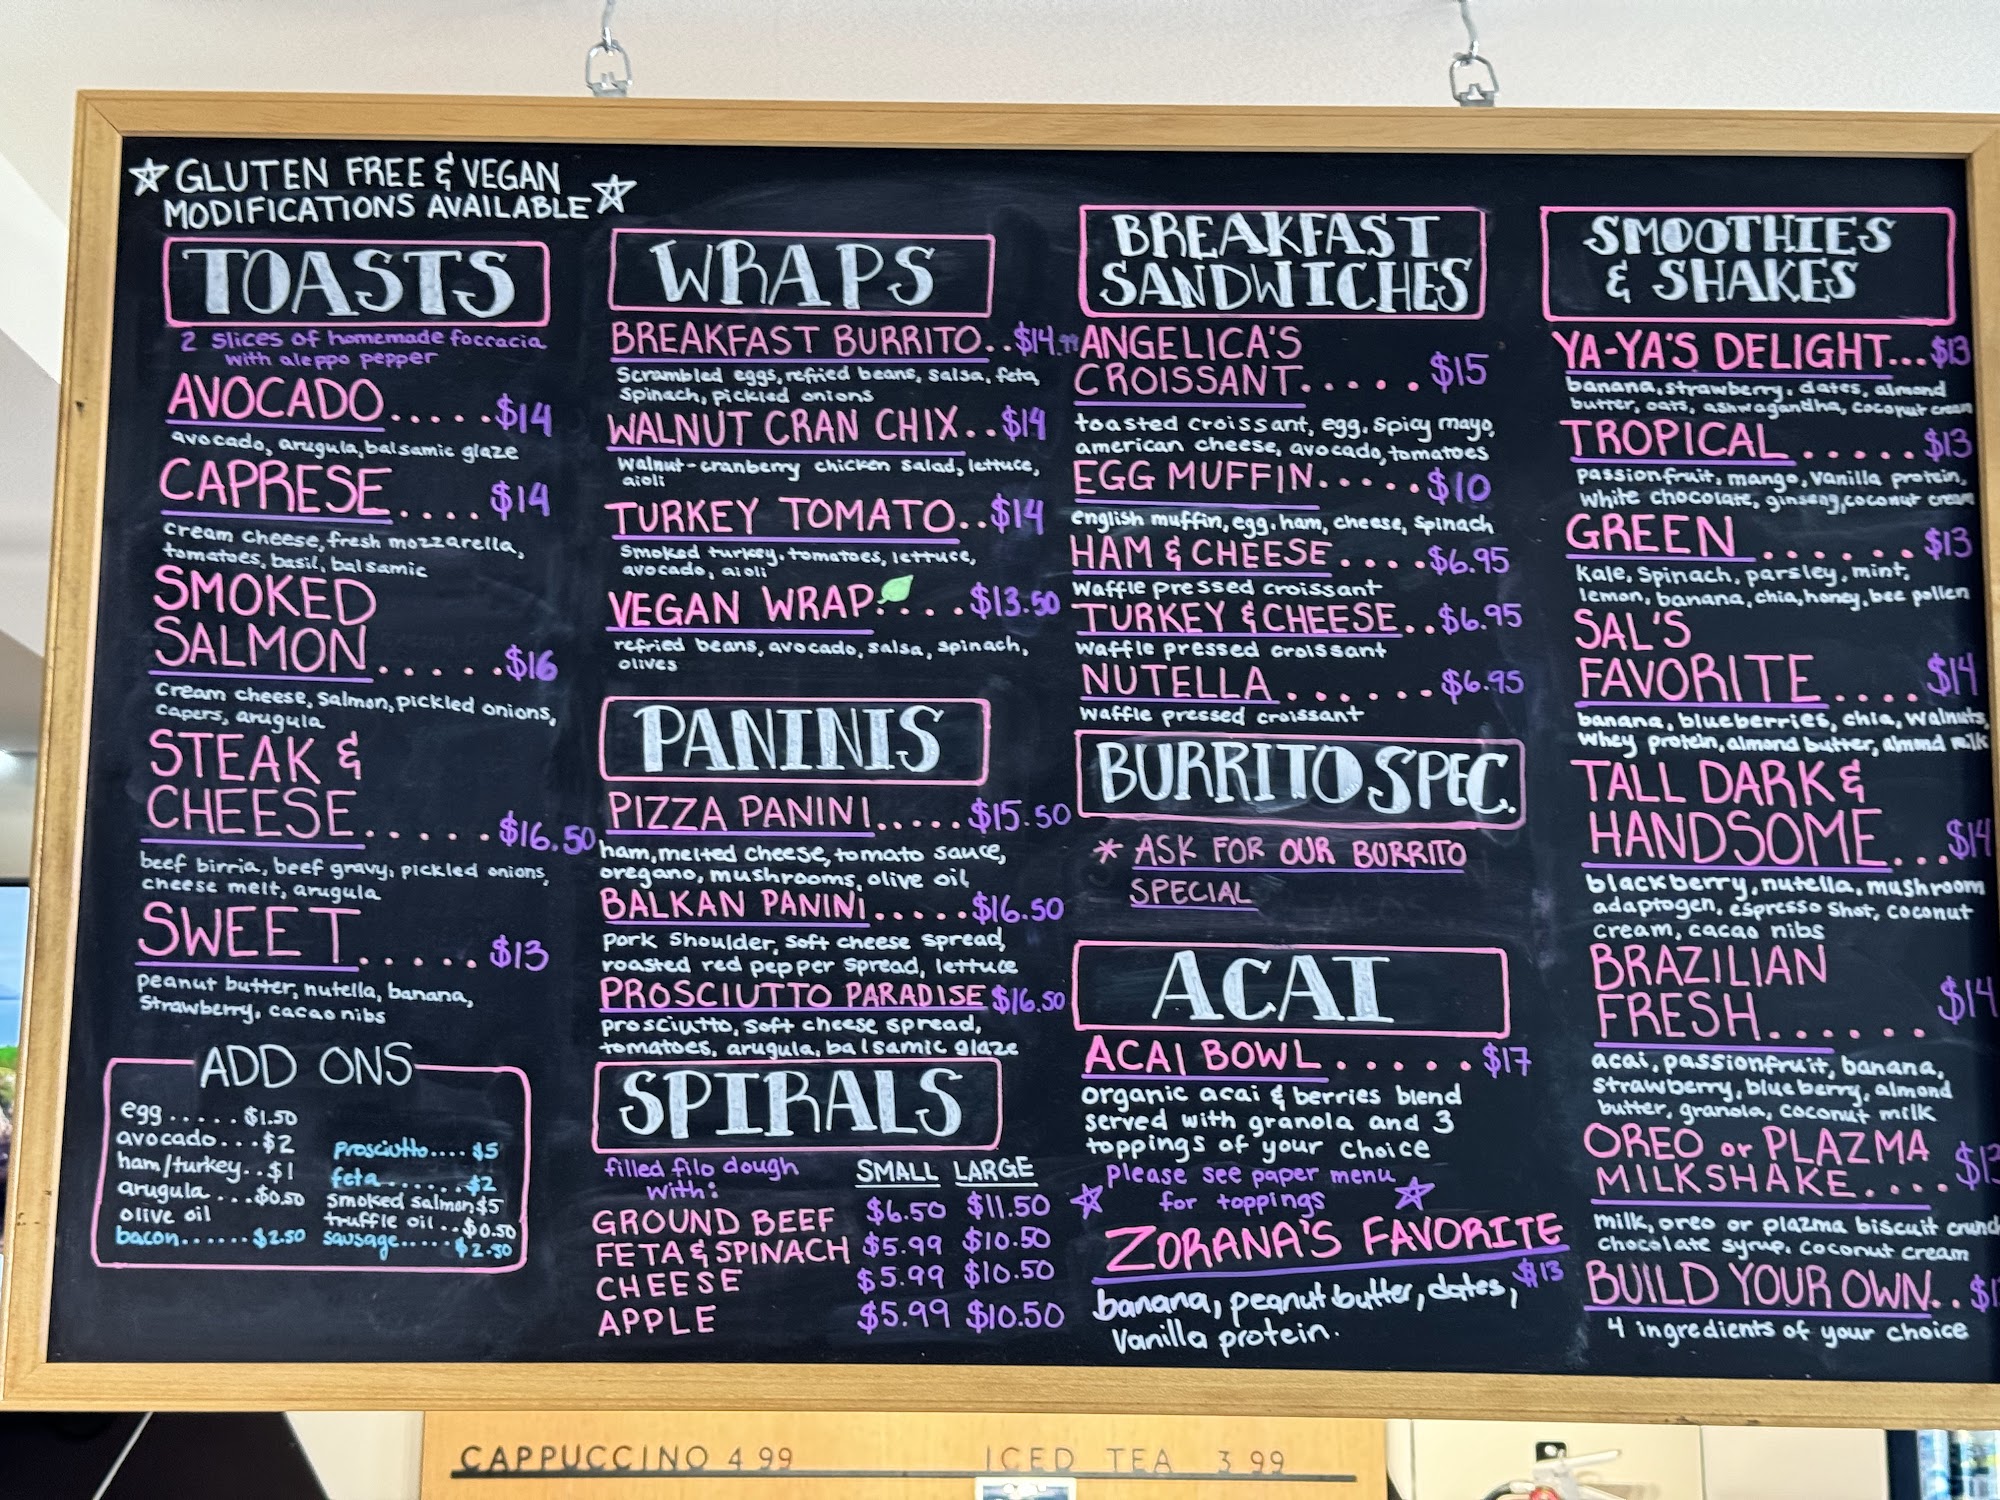 GLUTEN FREE & VEGAN
MODIFICATIONS AVAILABLE
TOASTS
2 slices of homemade foccacia
with aleppo pepper
AVOCADO.....$14
avocado, arugula, balsamic glaze
CAPRESE....$14
cream cheese, fresh mozzarella,
tomatoes, basil, balsamic
SMOKED
SALMON.....$16
Cream cheese, Salmon, pickled onions,
capers, arugula
STEAK &
CHEESE.....$16.50
beef birria, beef gravy, pickled onions,
cheese melt, arugula
SWEET.....$13
peanut butter, nutella, banana,
Strawberry, cacao nibs
ADD ONS
egg.....$1.50
avocado...$2
ham/turkey..$1
arugula...$0.50
olive oil
bacon......$2.50
prosciutto....$5
feta.......$2
smoked salmon $5
truffle oil..$0.50
sausage.....$2.50
WRAPS
BREAKFAST BURRITO..$14.99
Scrambled eggs, refried beans, salsa, feta,
Spinach, pickled onions
WALNUT CRAN CHIX..$14
Walnut-cranberry chicken salad, lettuce,
aioli
TURKEY TOMATO..$14
Smoked turkey, tomatoes, lettuce,
avocado, aioli
VEGAN WRAP....$13.50
refried beans, avocado, salsa, spinach,
olives
PANINIS
PIZZA PANINI.....$15.50
ham, melted cheese, tomato sauce,
oregano, mushrooms, olive oil
BALKAN PANINI.....$16.50
pork Shoulder, Soft cheese spread,
roasted red pepper spread, lettuce
PROSCIUTTO PARADISE $16.50
prosciutto, soft cheese spread,
tomatoes, arugula, balsamic glaze
SPIRALS
filled filo dough
with:
SMALL LARGE
GROUND BEEF $6.50 $11.50
FETA & SPINACH $5.99 $10.50
CHEESE $5.99 $10.50
APPLE $5.99 $10.50
BREAKFAST
SANDWICHES
ANGELICA'S
CROISSANT.....$15
toasted croissant, egg, Spicy mayo,
american cheese, avocado, tomatoes
EGG MUFFIN.....$10
english muffin, egg, ham, cheese, Spinach
HAM & CHEESE....$6.95
Waffle pressed croissant
TURKEY & CHEESE..$6.95
Waffle pressed croissant
NUTELLA.......$6.95
Waffle pressed croissant
BURRITO SPEC.
* ASK FOR OUR BURRITO
SPECIAL
ACAI
ACAI BOWL......$17
organic acai & berries blend
served with granola and 3
toppings of your choice
please see paper menu
for toppings
ZORANA'S FAVORITE
$13
banana, peanut butter, dates,
Vanilla protein.
SMOOTHIES
& SHAKES
YA-YA'S DELIGHT...$13
banana, strawberry, dates, almond
butter, oats, ashwagandha, coconut cream
TROPICAL.....$13
passionfruit, mango, Vanilla protein,
White chocolate, ginseng, coconut cream
GREEN.......$13
Kale, Spinach, parsley, mint,
lemon, banana, chia, honey, bee pollen
SAL'S
FAVORITE....$14
banana, blueberries, chia, walnuts,
Whey protein, almond butter, almond milk
TALL DARK &
HANDSOME...$14
blackberry, nutella, mushroom
adaptogen, espresso shot, coconut
cream, cacao nibs
BRAZILIAN
FRESH......$14
acai, passionfruit, banana,
strawberry, blueberry, almond
butter, granola, coconut milk
OREO or PLAZMA
MILKSHAKE....
milk, oreo or plazma biscuit crunch
chocolate syrup, coconut cream
BUILD YOUR OWN..
4 ingredients of your choice
CAPPUCCINO 4 99
ICED TEA 3 99